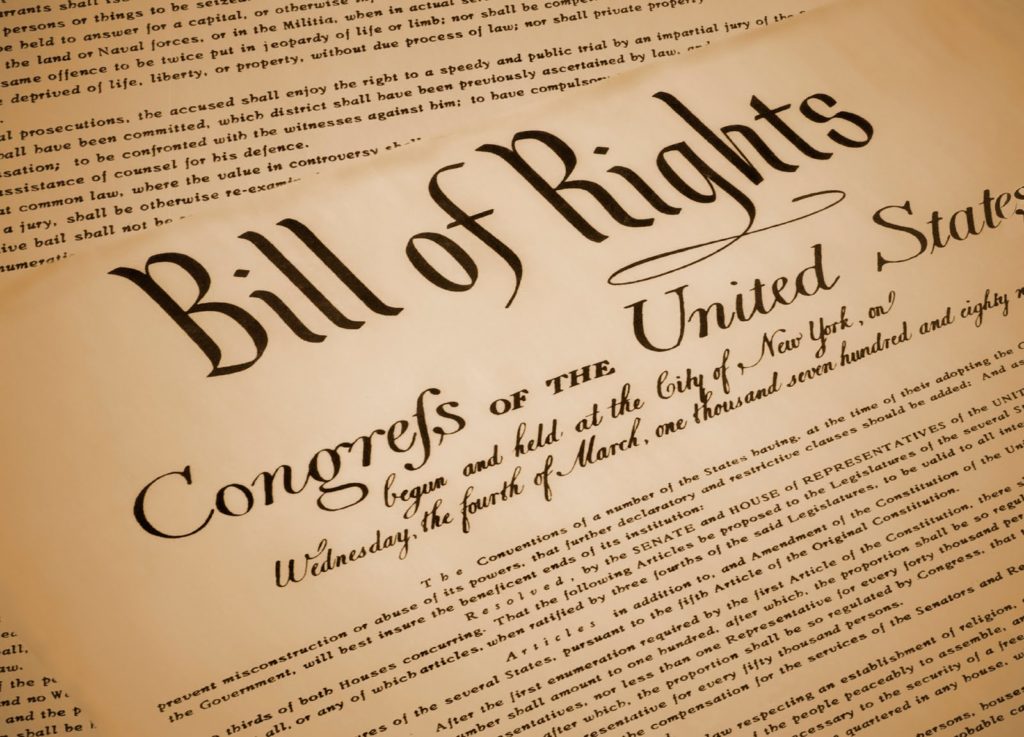 arrants shall
persons or things to be seized
be held to answer for a capital, or otherwise
the land or Naval forces, or in the Militia, when in actual
same offence to be twice put in jeopardy of life or limb; nor shall be
deprived of life, liberty, or property, without due process of law; nor shall private property
al prosecutions, the accused shall enjoy the right to a speedy and public trial by an impartial jury of the
all have been committed, which district shall have been previously ascertained by law, and
sation; to be confronted with the witnesses against him; to have compulsory
assistance of counsel for his defence.
at common law, where the value in controversy shall
a jury, shall be otherwise re-exami
ive bail shall not be
numerati
Bill of Rights
Congreſs OF THE United States
begun and held at the City of New York, on
Wednesday, the fourth of March, one thousand seven hundred and eighty
The Conventions of a number of the States having, at the time of their adopting the
prevent misconstruction or abuse of its powers, that further declaratory and restrictive clauses should be added: And as
the Government, will best insure the beneficent ends of its institution:
Resolved, by the SENATE and HOUSE of REPRESENTATIVES of the UNIT
thirds of both Houses concurring. That the following Articles be proposed to the Legislatures of the several S
all, or any of which articles, when ratified by three fourths of the said Legislatures, to be valid to all inte
Articles in addition to, and Amendment of the Constitution of the Uni
res of the several States, pursuant to the fifth Article of the Original Constitution.
After the first enumeration required by the first Article of the Constitution, there s
mber shall amount to one hundred, after which, the proportion shall be so regul
entatives, nor less than one Representative for every forty thousand per
after which, the proportion shall be so regulated by Congress, that
resentative for every fifty thousand persons.
the compensation for the services of the Senators and Re
law respecting an establishment of religion,
of the people peaceably to assemble, an
necessary to the security of a free
quartered in any house,
persons, house
probable ca
law.
of the p
nd no W
and the p
shall be